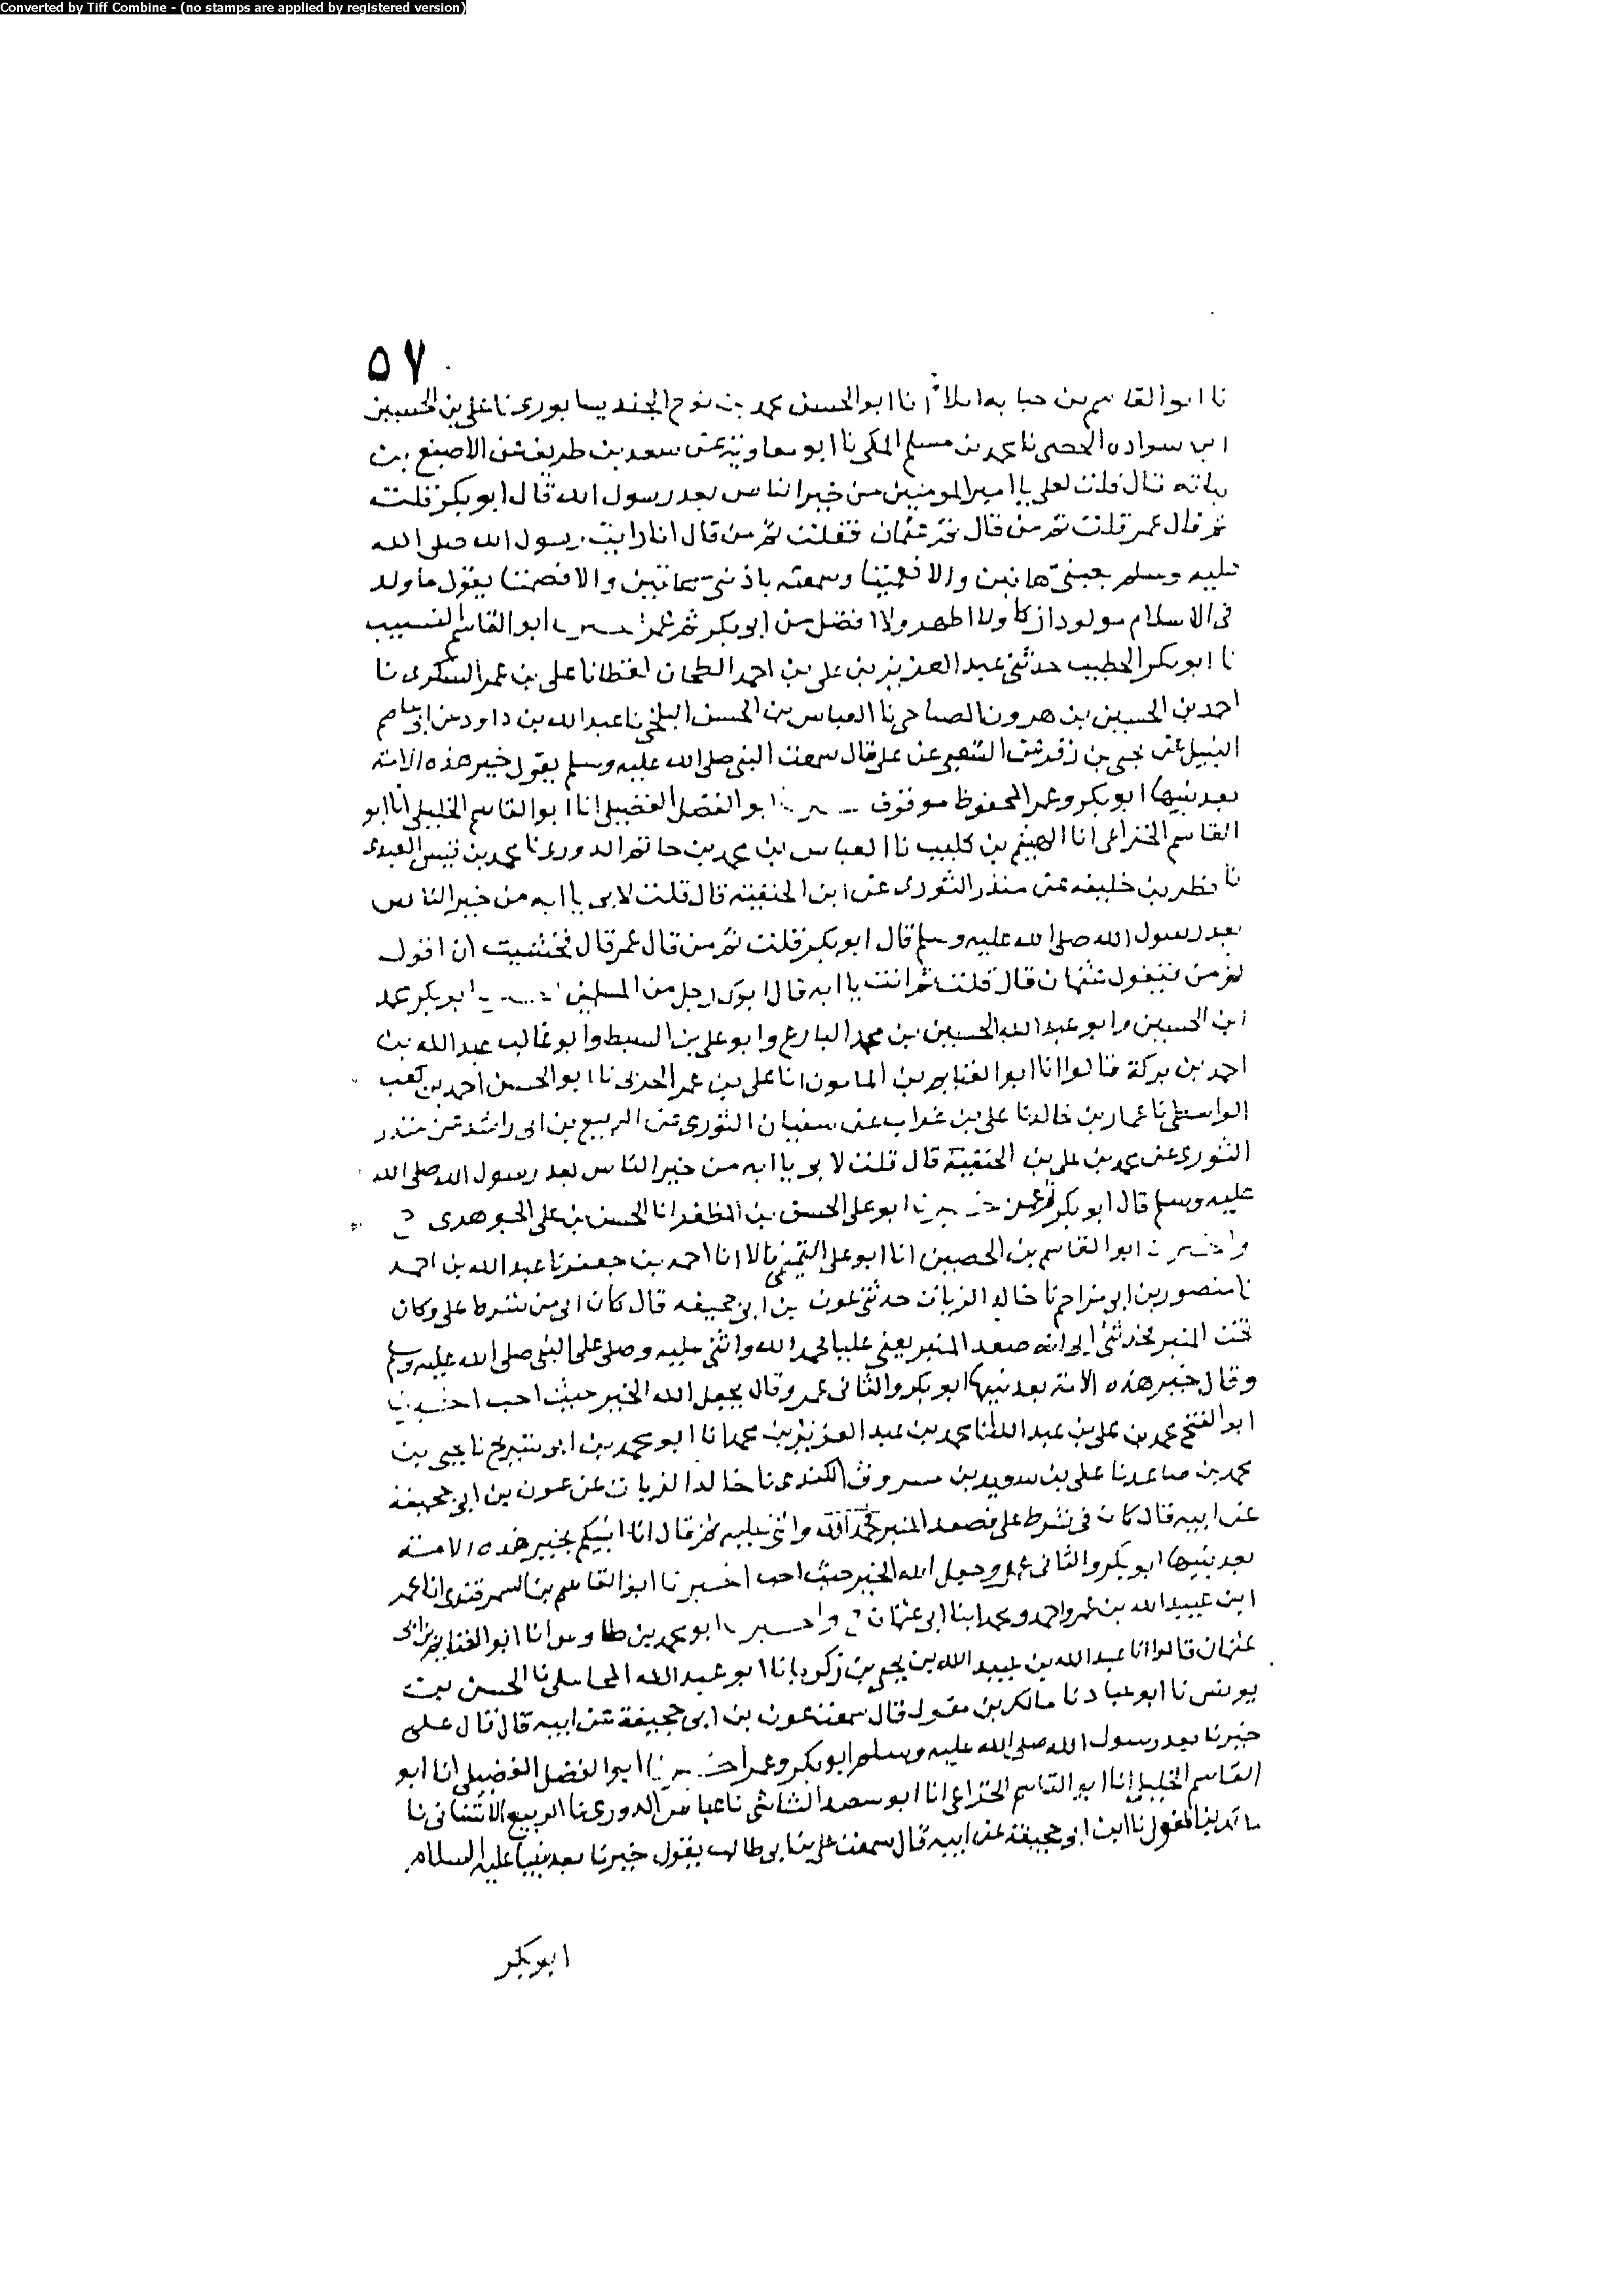 Converted by Tiff Combine - (no stamps are applied by registered version)
٥٧
نا ابو القاسم بن حبابه املاً انا ابو الحسن محمد بن نوح الجنديسابورى نا على بن الحسين
ابن سواده الحصى نا محمد بن مسلم المكى نا ابو معاوية عن سعد بن طريف عن الاصبغ بن
نباته قال قلت لعلى يا امير المومنين من خير الناس بعد رسول الله قال ابو بكر قلت
ثم قال عمر قلت ثم من قال ثم عثمان فقلت ثم من قال انا رايت رسول الله صلى الله
عليه وسلم بعينىّ هاتين والا فعميتا وسمعته باذنىّ هاتين والا فصمتا يقول ما ولد
فى الاسلام مولود ازكا ولا اطهر ولا افضل من ابى بكر ثم عمر ابو القاسم النسيب
نا ابو بكر الخطيب حدثنى عبد العزيز بن على بن احمد الطحان لفظا نا على بن عمر السكرى نا
احمد بن الحسين بن هرون الصباحى نا العباس بن الحسن البلخى نا عبد الله بن داود عن ابى عاصم
النبيل عن يحيى بن زفر عن الشعبى عن على قال سمعت النبى صلى الله عليه وسلم يقول خير هذه الامة
بعد نبيها ابو بكر وعمر المحفوظ موقوف ابو الفضل الفضيلى انا ابو القاسم الخليلى انا ابو
القاسم الخزاعى انا الهيثم بن كليب نا العباس بن محمد بن حاتم الدورى نا محمد بن العبدى
نا فطر بن خليفه عن منذر الثورى عن ابن الحنفية قال قلت لابى يا ابه من خير الناس
بعد رسول الله صلى الله عليه وسلم قال ابو بكر قلت ثم من قال عمر قال فخشيت ان اقول
ثم من فيقول عثمان قال قلت ثم انت يا ابه قال ابوك رجل من المسلمين ابو بكر محمد
ابن الحسين وابو عبد الله الحسين بن محمد البارع وابو على بن السبط وابو غالب عبد الله بن
احمد بن بركة قالوا انا ابو الغنايم بن المامون انا على بن عمر الحربى نا ابو الحسن احمد بن كعب
الواسطى نا عمار بن خالد نا على بن غراب عن سفيان الثورى عن الربيع بن ابى راشد عن منذر
الثورى عن محمد بن على بن الحنفية قال قلت لابى يا ابه من خير الناس بعد رسول الله صلى الله
عليه وسلم قال ابو بكر ابو على الحسن بن المظفر انا الحسن بن على الجوهرى ح
ابو القاسم بن الحصين انا ابو على التميمى قالا انا احمد بن جعفر نا عبد الله بن احمد
نا منصور بن ابى مزاحم نا خالد الزيات حدثنى عون بن ابى جحيفه قال كان ابى من شرط على وكان
تحت المنبر فحدثنى ابى انه صعد المنبر يعنى عليا فحمد الله واثنى عليه وصلى على النبى صلى الله عليه وسلم
وقال خير هذه الامة بعد نبيها ابو بكر والثانى عمر وقال يجعل الله الخير حيث احب اخبرنا
ابو الفتح محمد بن على بن عبد الله انا محمد بن عبد العزيز بن محمد انا ابو محمد بن ابى شريح نا يحيى بن
محمد بن صاعد نا على بن سويد بن مسروق الكندى نا خالد الزيات عن عون بن ابى جحيفة
عن ابيه قال كان فى شرط على فصعد المنبر فحمد الله واثنى عليه ثم قال انا انبيكم بخير هذه الامة
بعد نبيها ابو بكر والثانى عمر وجعل الله الخير حيث احب اخبرنا ابو القاسم بن السمرقندى انا عمر
ابن عبيد الله بن عمر واحمد ومحمد ابنا ابى عثمان ح واخبرنا ابو محمد بن طاوس انا ابو الغنايم بن ابى
عثمان قالوا انا عبد الله بن عبيد الله بن يحيى بن زكريا نا ابو عبد الله المحاملى نا الحسن بن
يونس نا ابو عباد نا مالك بن مغول قال سمعت عون بن ابى جحيفة عن ابيه قال قال على
خيرنا بعد رسول الله صلى الله عليه وسلم ابو بكر وعمر ابو الفضل الفضيلى انا ابو
القاسم الخليلى انا ابو القاسم الخزاعى انا ابو سعد الشاشى نا عباس الدورى نا الربيع الاشنانى نا
مالك بن مغول نا ابن ابى جحيفة عن ابيه قال سمعت على بن ابى طالب يقول خيرنا بعد نبينا عليه السلام
ابو بكر